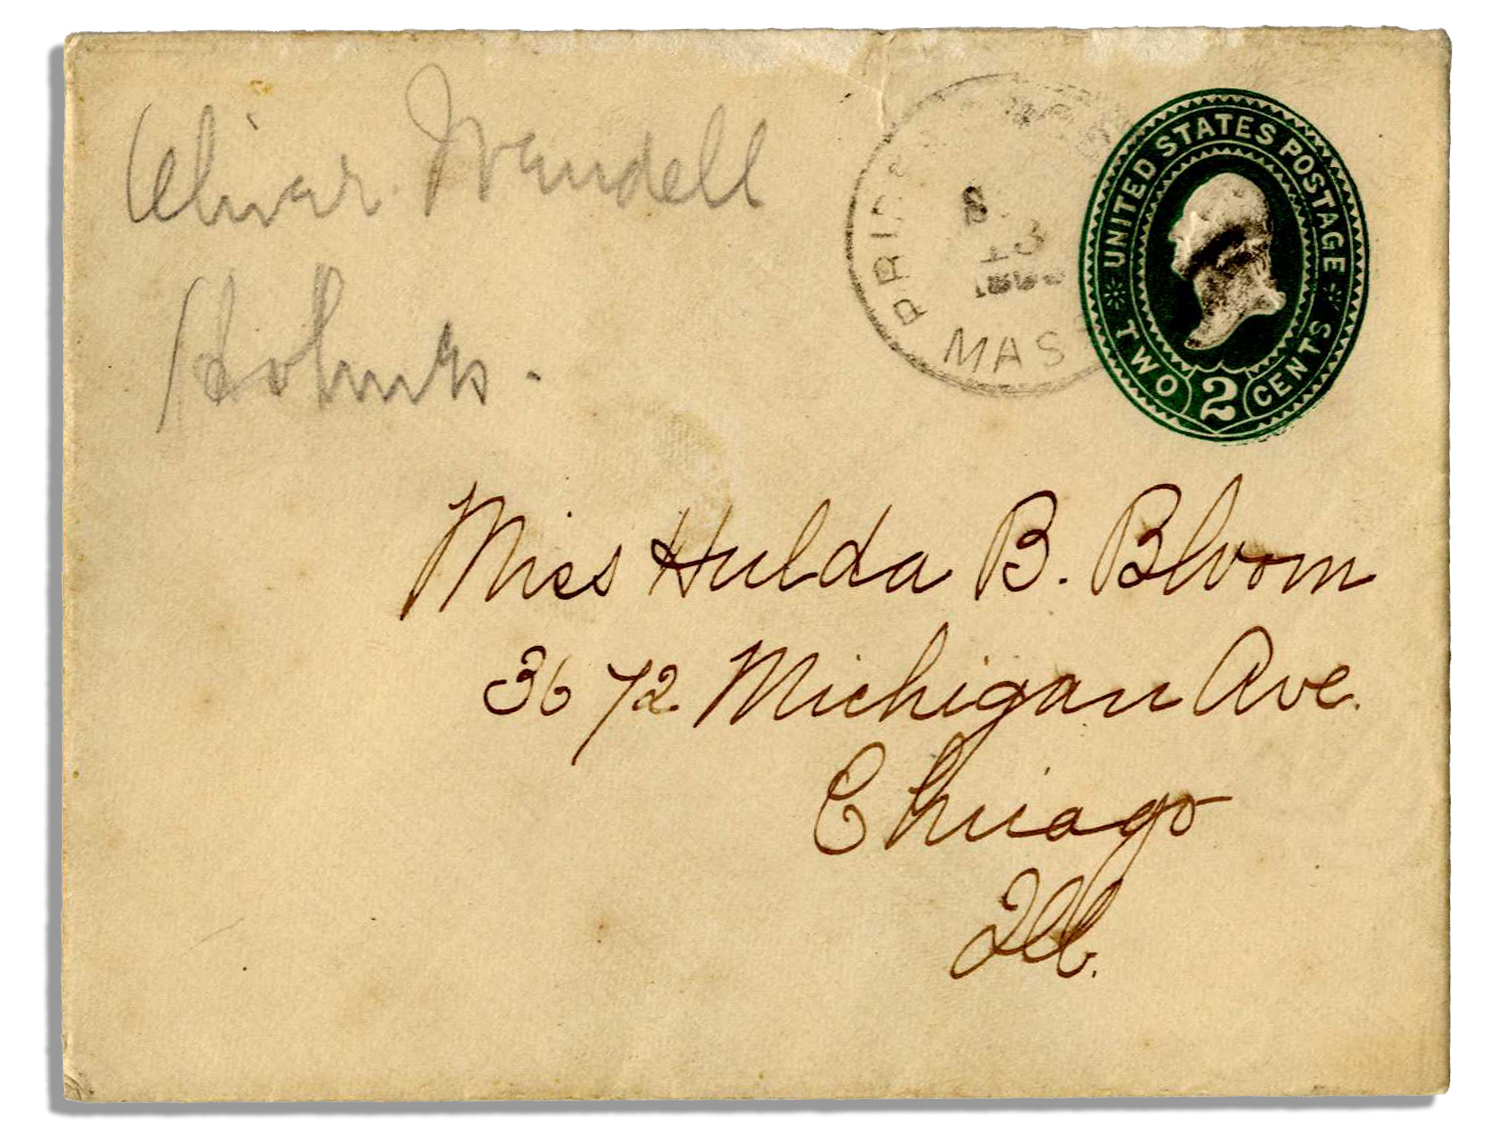 Oliver Wendell
Holmes.
PRIDE
MASS
13
UNITED STATES POSTAGE
TWO 2 CENTS
Miss Hulda B. Bloom
3672 Michigan Ave.
Chicago
Ill.